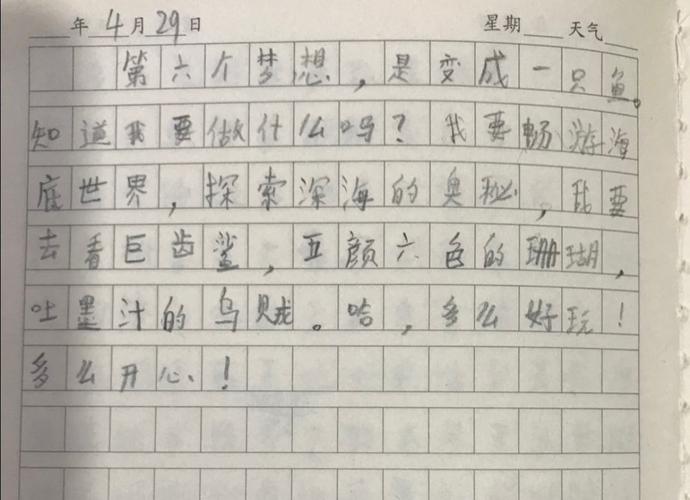 年4月29日 星期 天气
第六个梦想，是变成一只鱼。
知道我要做什么吗？我要畅游海
底世界，探索深海的奥秘，我要
去看巨齿鲨，五颜六色的珊瑚，
吐墨汁的乌贼。哈，多么好玩！
多么开心！